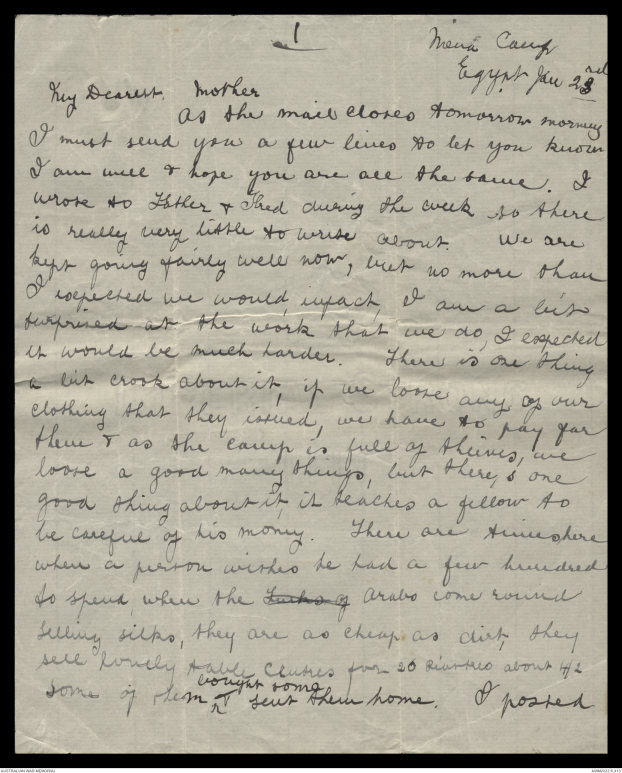 1
Mena Camp
Egypt Jan 23rd
My Dearest Mother
As the mail closes tomorrow morning
I must send you a few lines to let you know
I am well & hope you are all the same. I
wrote to Father & Fred during the week so there
is really very little to write about. We are
kept going fairly well now, but no more than
I expected we would, infact, I am a bit
surprised at the work that we do, I expected
it would be much harder. There is one thing
a bit crook about it, if we loose any of our
clothing that they issued, we have to pay for
them & as the camp is full of theives, we
loose a good many things, but there,s one
good thing about it, it teaches a fellow to
be careful of his money. There are times here
when a person wishes he had a few hundred
to spend, when the Turks of Arabs come round
selling silks, they are as cheap as dirt, they
sell lovely table centres for 20 Piastres about 4/2
bought some
Some of them & sent them home. I posted
AUSTRALIAN WAR MEMORIAL
AWM2022.6.413